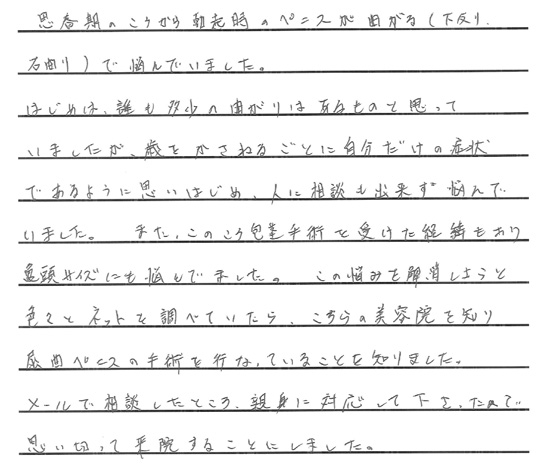 思春期のころから勃起時のペニスが曲がる(下反り.
右曲り)で悩んでいました。
はじめは、誰も多少の曲がりは有るものと思って
いましたが、歳をかさねるごとに自分だけの症状
であるように思いはじめ、人に相談も出来ず悩んで
いました。 また、このころ包茎手術を受けた経緯もあり
亀頭サイズにも悩んでました。 この悩みを解消しようと
色々とネットを調べていたら、こちらの美容院を知り
屈曲ペニスの手術を行なっていることを知りました。
メールで相談したところ、親身に対応して下さったので
思い切って来院することにしました。